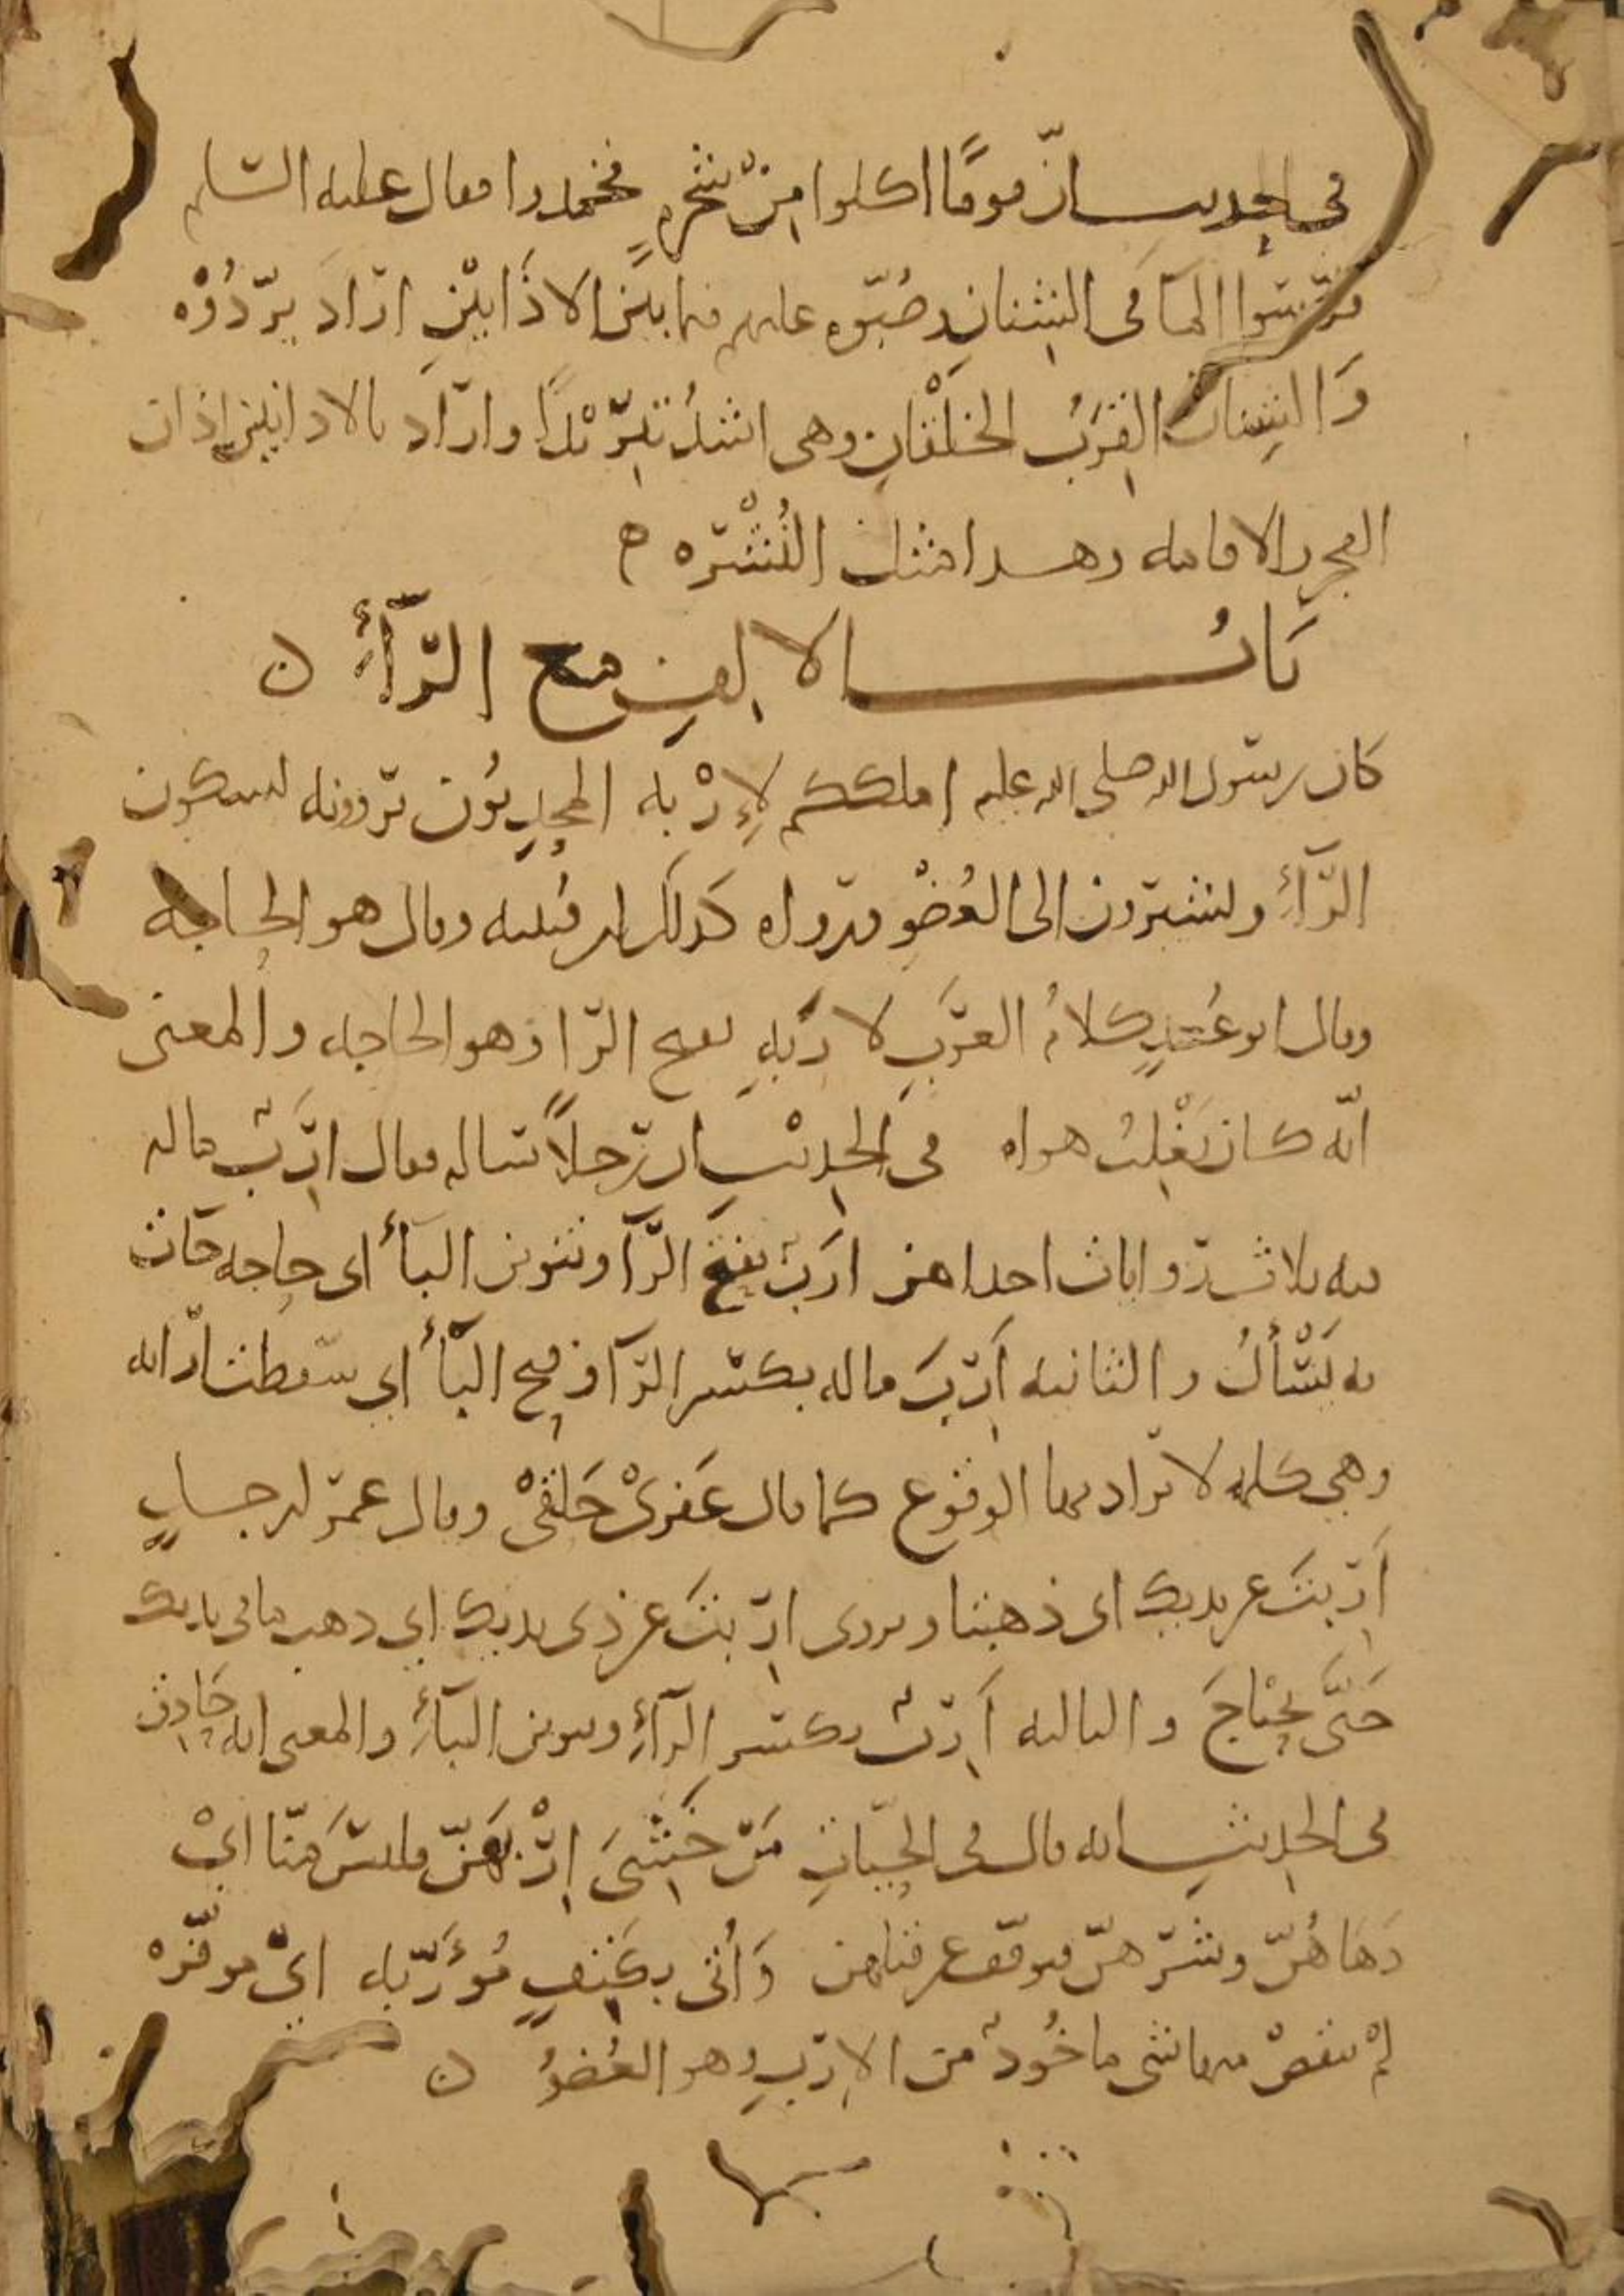 في الحديث انّ قومًا اكلوا من شجرٍ فخمدوا فقال عليه السلم
قرّسوا الماَ في الشنانِ وصُبّوه عليهم فيما بيَن الاذَانَيْنِ ارَادَ بَرِّدُوْه
وَالشِنان القِرَبُ الخلْقانِ وهي اشدُ تبرّيْدًا وارَاد بالاذانين اذان
الفجر والاقامه وهذا مثل النُشْرَه ه
بَابُ الالفِ مع الرَّآءِ ن
كان رسول الله صلى الله عليه املككم لإِرْبه المحدِثوُن يَروونه بسكون
الرَّآءِ ويشيرون الى العُضْوِ ورواه كذلك ابن قتيبه وقال هو الحاجه
وقال ابو عُبيدٍ كلامُ العَرَبِ لاَرَبِهِ بفتح الرّا وهو الحاجه والمعنى
انّه كان يَغْلِبُ هواه في الحديْثِ ان رَجلاً ساله فقال ارَبٌ ماله
فيه ثلاث روايات احداهن ارَبٌ بفتح الرَّآ وتنوين البآءُ اي حاجه جَات
به يَسْألُ والثانيه اَرِبَ ماله بكسر الرَّآ وفتح البآءُ اي سقطت ارَابه
وهي كلمه لا يراد بها الوقوع كما قال عَقرىْ حَلقىْ وقال عمَر لرجلٍ
اَرِبتَ عن يديك اي ذهبتا ويروى ارِبتَ عن ذي يديك اي ذهب ما في يديك
حَتَّى يحتاجَ والثالثه اَرِبٌ بكسر الرآءِ وتنوين البآءِ والمعنى انه حَاذِق
في الحديثِ انه قال في الحيّاتِ مَنْ خَشيَ اِرْبَهنّ فليسَ منّا ايْ
دَهَاهُنّ وشرّهنّ فتوقّف عن قتلهن وَأُتى بكَتِفٍ مُؤَرَّبه ايْ موفّره
لمْ ينقصْ منها شي ماخُوذٌ من الارْبِ وهو العُضوُ ن